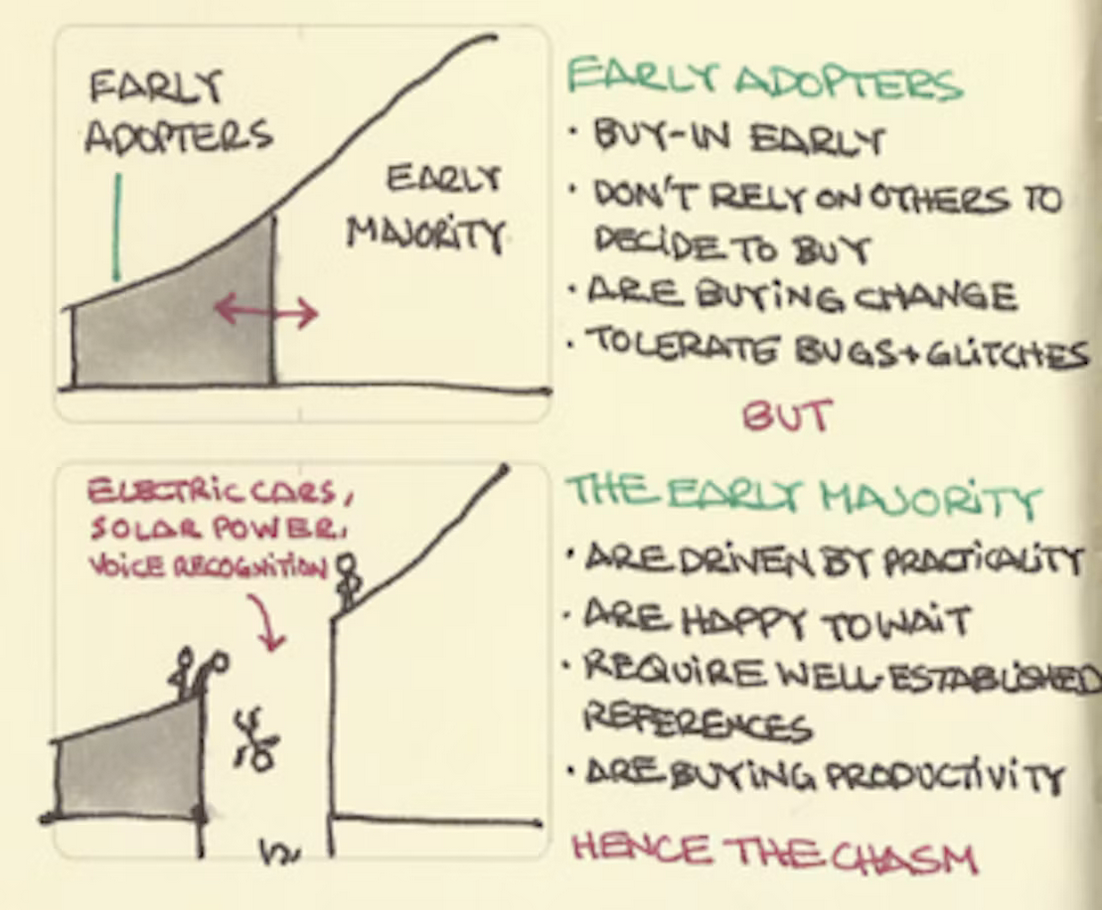 EARLY
ADOPTERS
EARLY
MAJORITY
EARLY ADOPTERS
· BUY-IN EARLY
· DON'T RELY ON OTHERS TO
DECIDE TO BUY
· ARE BUYING CHANGE
· TOLERATE BUGS+GLITCHES
BUT
ELECTRIC CARS,
SOLAR POWER,
VOICE RECOGNITION
THE EARLY MAJORITY
· ARE DRIVEN BY PRACTICALITY
· ARE HAPPY TO WAIT
· REQUIRE WELL-ESTABLISHED
REFERENCES
· ARE BUYING PRODUCTIVITY
HENCE THE CHASM